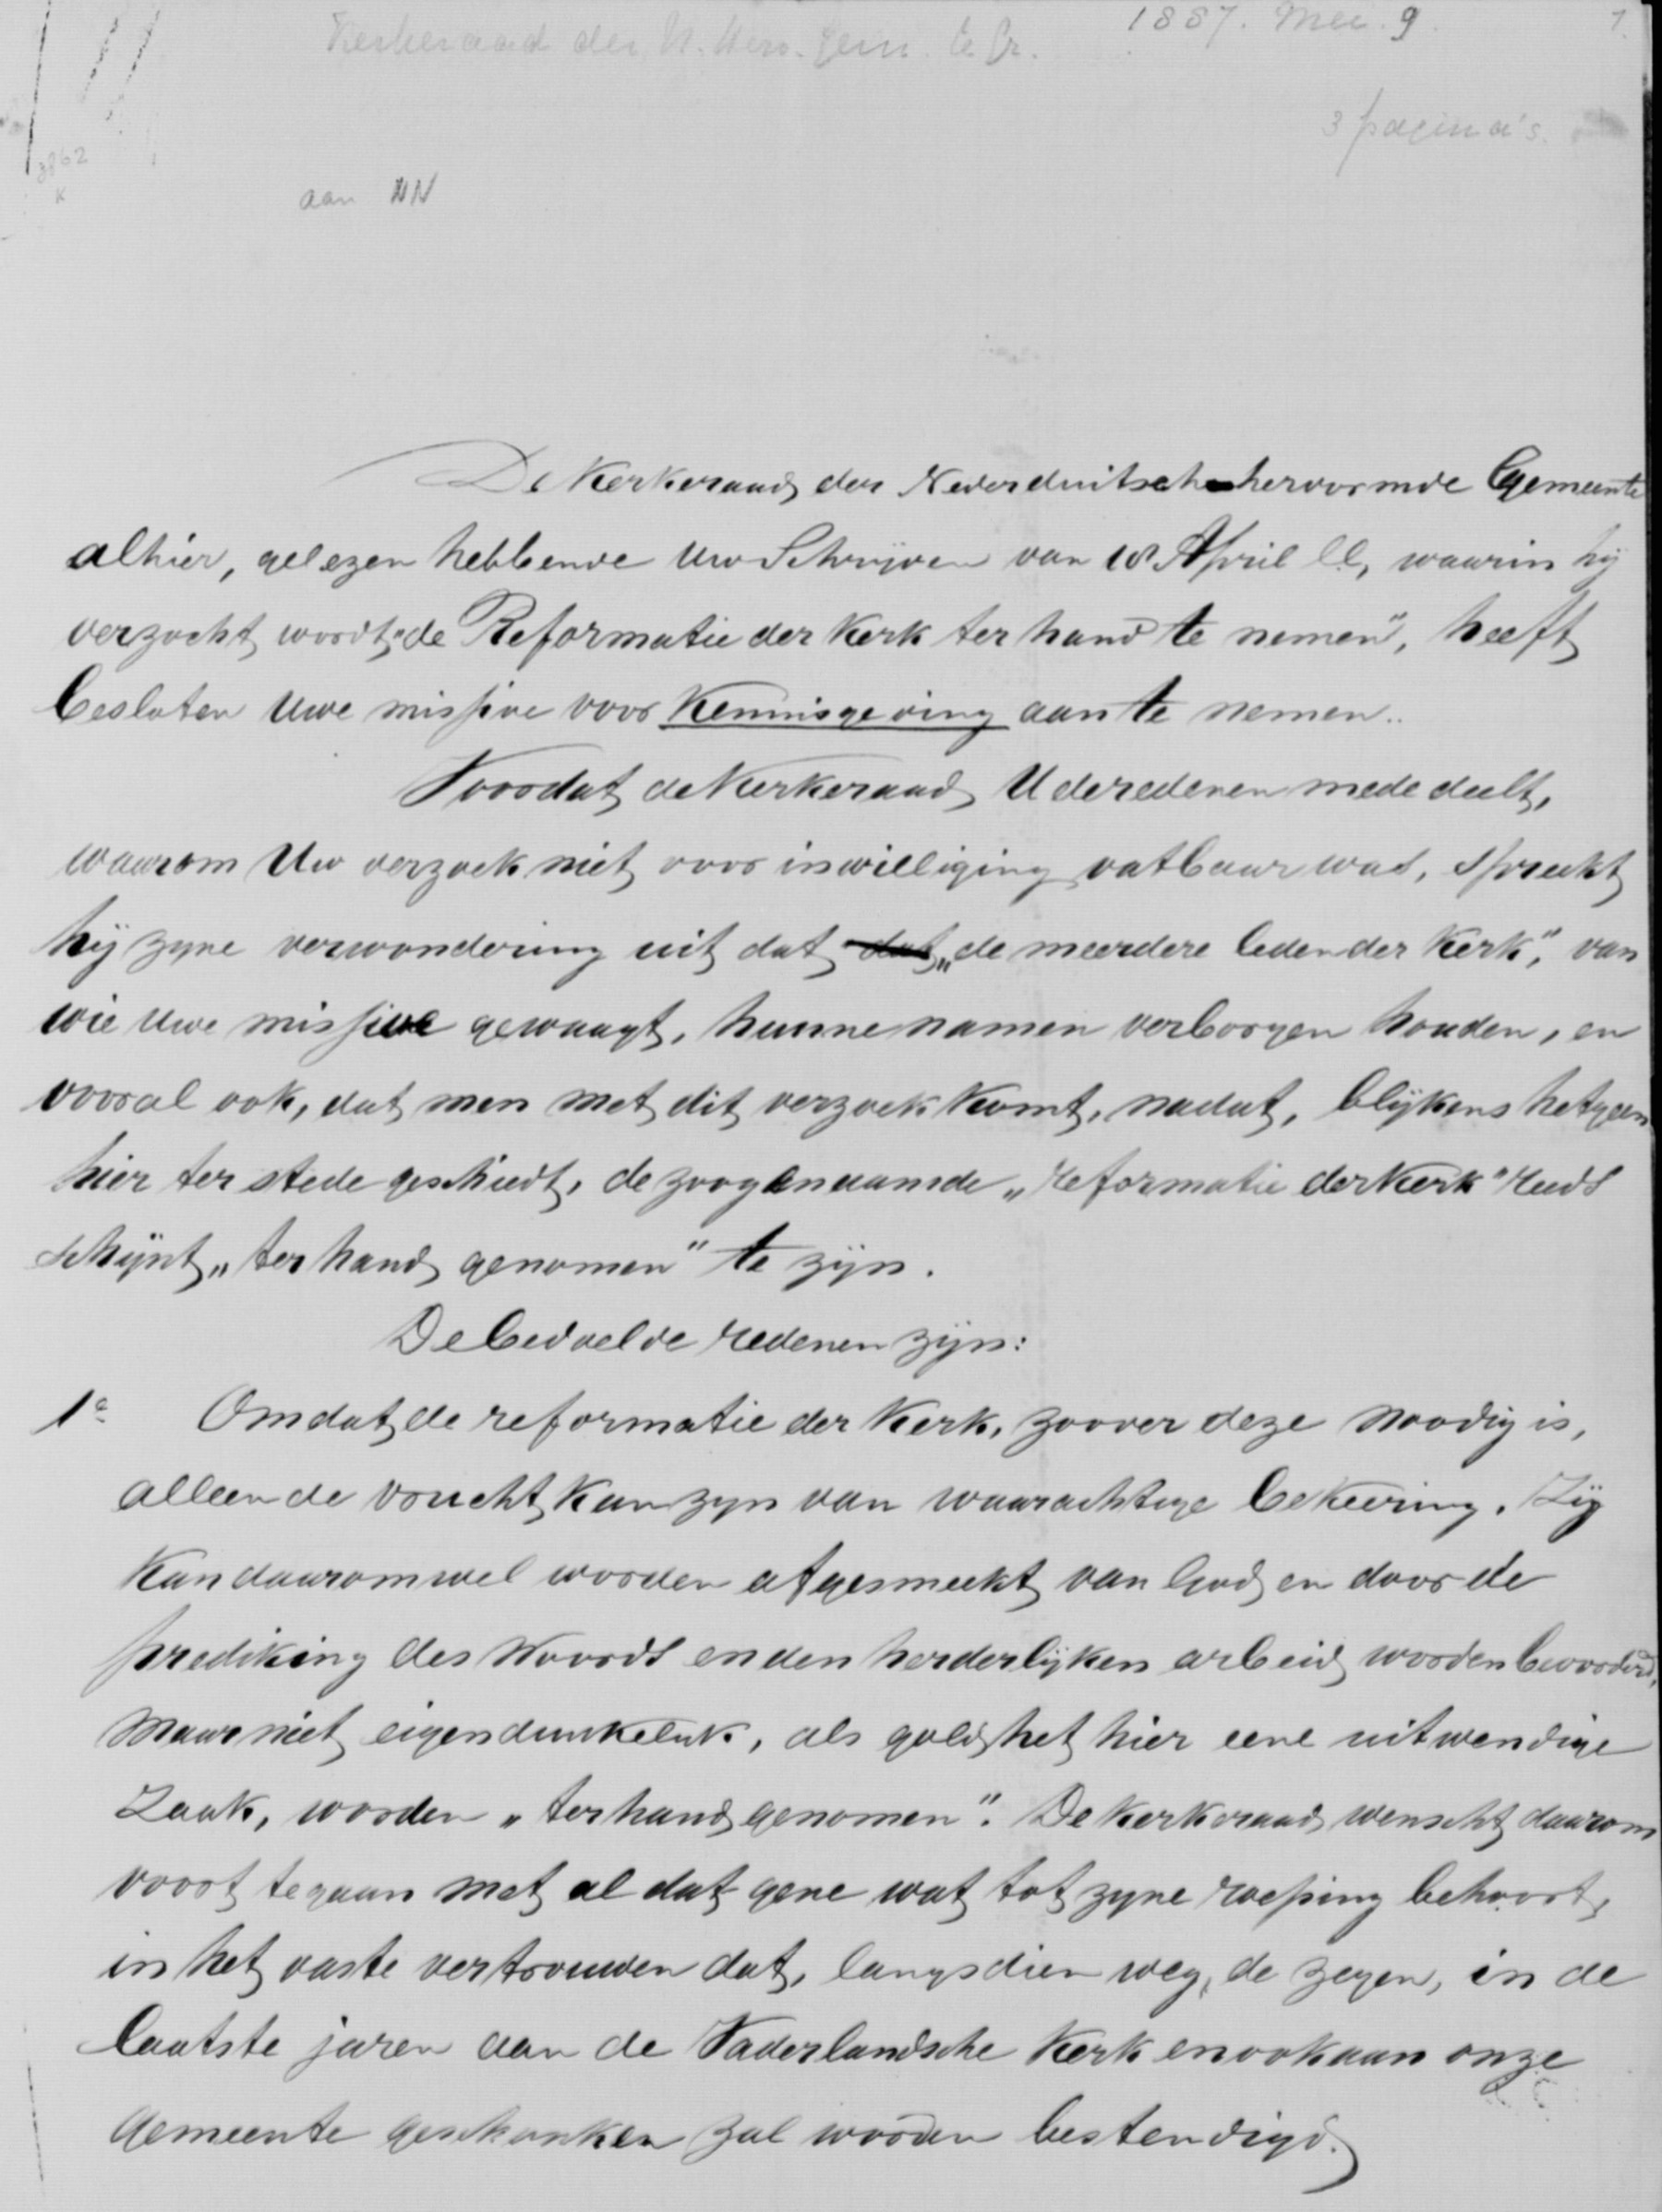 Kerkeraad der N. Herv. Gem. te Gr. 1887. Mei. 9. 1.
3 pagina's.
3862
K
aan NN
De Kerkeraad der Nederduitsch hervormde Gemeente
alhier, gelezen hebbende Uw Schrijven van 18 April ll, waarin hij
verzocht wordt „de Reformatie der Kerk ter hand te nemen", heeft
besloten Uwe missive voor Kennisgeving aan te nemen.
Voordat de Kerkeraad U de redenen mededeelt,
waarom Uw verzoek niet voor inwilliging vatbaar was, spreekt
hij zyne verwondering uit dat dat „de meerdere leden der Kerk", van
wie Uwe missive gewaagt, hunne namen verborgen houden, en
vooral ook, dat men met dit verzoek komt, nadat, blijkens hetgeen
hier ter stede geschiedt, de zoogenaamde „reformatie der Kerk" reeds
schijnt „ter hand genomen" te zijn.
De bedoelde redenen zijn:
1e Omdat de reformatie der Kerk, zoover deze noodig is,
alleen de vrucht kan zyn van waarachtige bekeering. Zij
kan daarom wel worden afgesmeekt van God en door de
prediking des Woords en den herderlijken arbeid worden bevorderd,
maar niet eigendunkelijk, als gold het hier eene uitwendige
Zaak, worden „ter hand genomen". De Kerkeraad wenscht daarom
voort te gaan met al dat gene wat tot zyne roeping behoort,
in het vaste vertrouwen dat, langs dien weg, de zegen, in de
laatste jaren aan de Vaderlandsche Kerk en ook aan onze
Gemeente geschonken zal worden bestendigd.